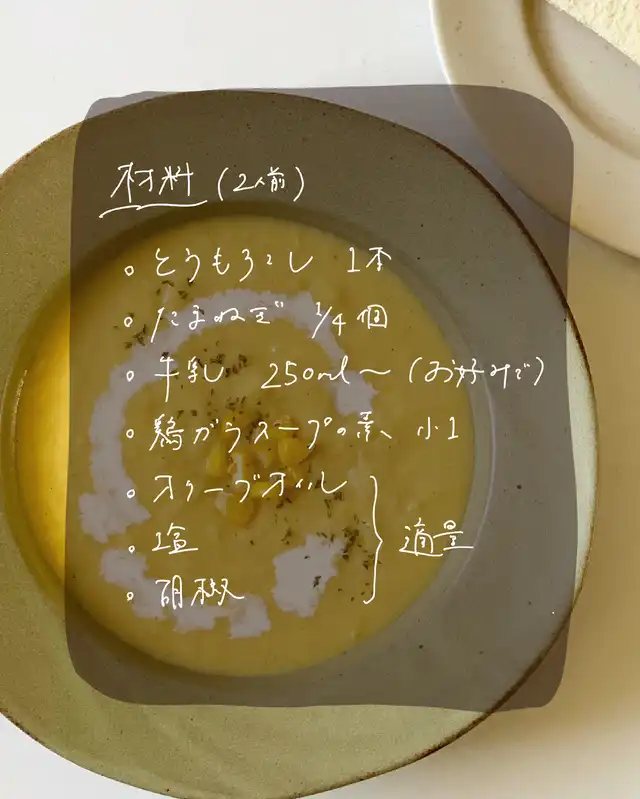 材料 (2人前)
。とうもろこし 1本
。たまねぎ 1/4個
。牛乳 250ml〜 (お好みで)
。鶏がらスープの素 小1
。オリーブオイル
。塩
。胡椒
適量